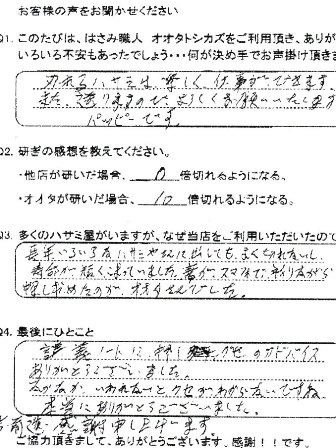 お客様の声をお聞かせください
Q1. このたびは、はさみ職人 オオタトシカズをご利用頂き、ありが
いろいろ不安もあったでしょう・・・何が決め手でお声掛け頂きま
切れるハサミは楽しく、仕事ができます。
また、送りますので、よろしくお願いいたします
ハッピーです。
Q2. 研ぎの感想を教えてください。
・他店が研いだ場合、 0 倍切れるようになる。
・オオタが研いだ場合、 10 倍切れるようになる。
Q3. 多くのハサミ屋がいますが、なぜ当店をご利用いただいたので
長年いろいろなハサミやさんに出しても、よく切れないし、
寿命が短くこまっていました。妻が、スマホで、
探し求めたのが、オオタさんでした。
Q4. 最後にひとこと
講義ノートに のアドバイス
ありがとうございました。
なかなか、いわれないとクセがわからないですね
本当にありがとうございました。
感謝申し上げます。
ご協力頂きまして、ありがとうございます。感謝！！です。